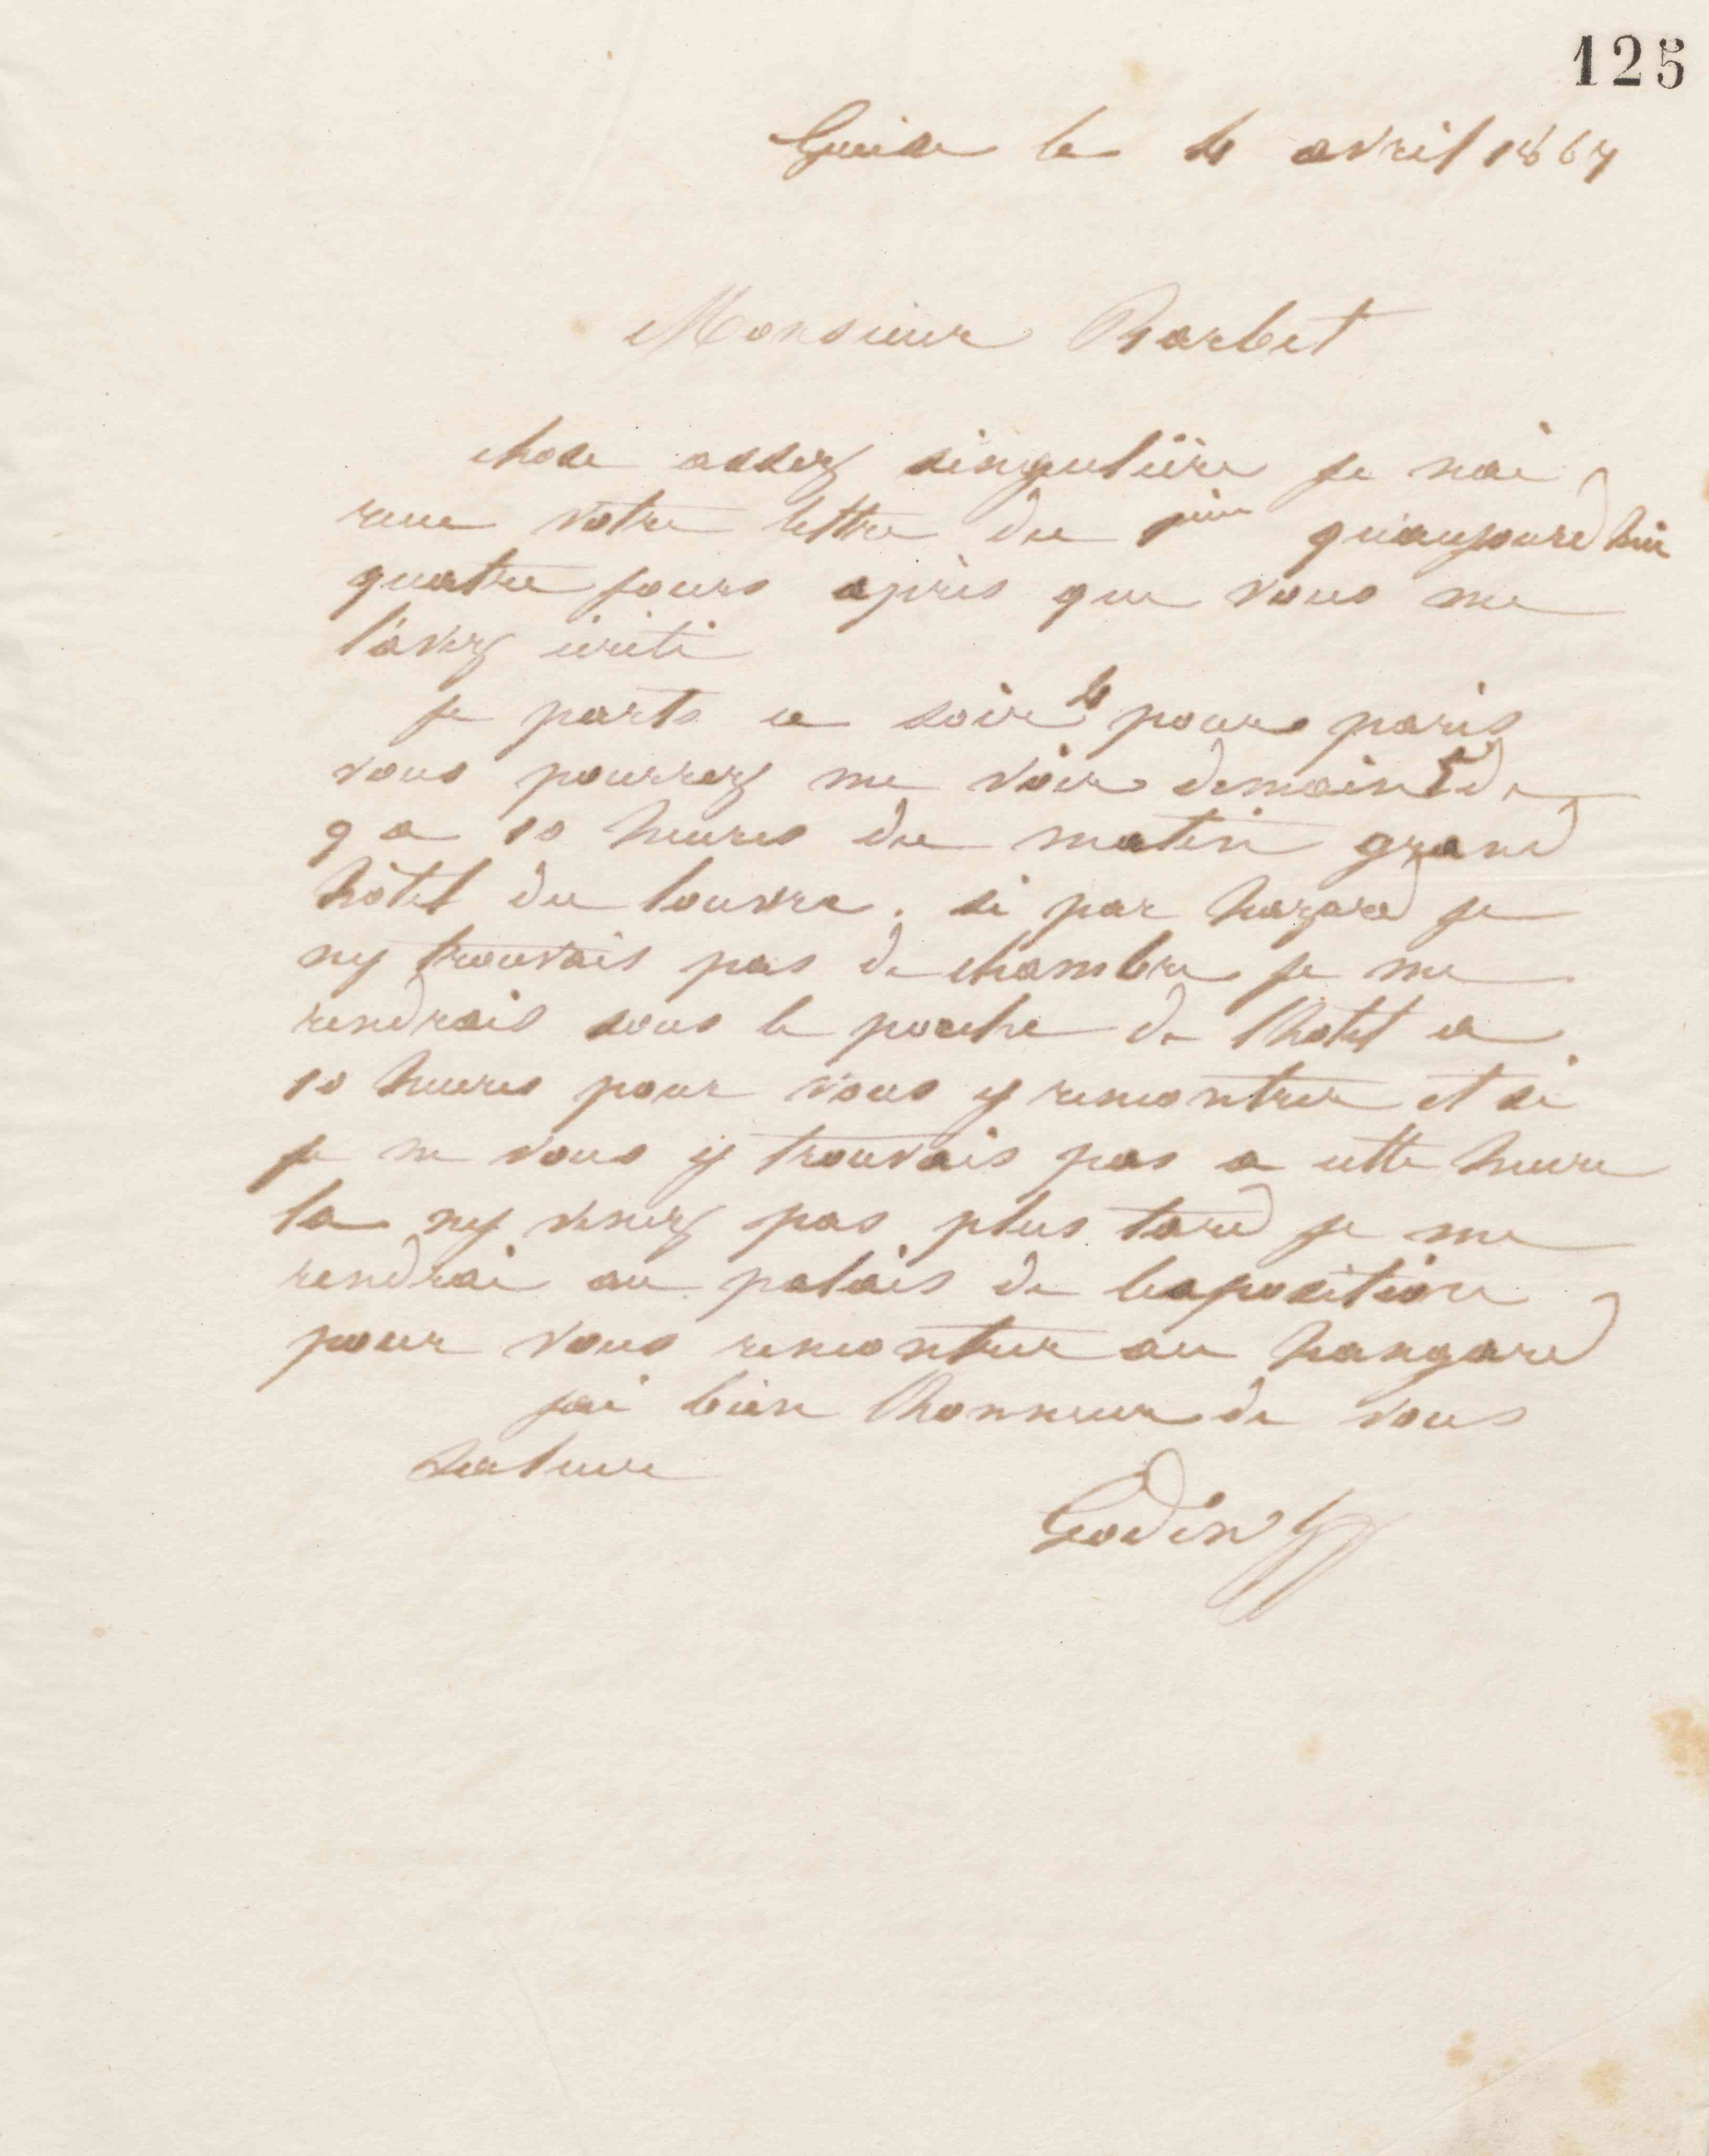 125
Guise le 4 avril 1867
Monsieur Barbet
chose assez singulière je nai
recu votre lettre du 1er qu'aujourdhui
quatre jours après que vous me
l'avez écrite
je parts ce soir 4 pour paris
vous pourrez me voir demain 5 de
9 a 10 heures du matin grand
hôtel du louvre. si par hazard je
ny trouvais pas de chambre je me
rendrais sous le porche de lhotel a
10 heures pour vous y rencontrer et si
je ne vous y trouvais pas a cette heure
la ny venez pas plus tard je me
rendrai au palais de lexposition
pour vous rencontrer au hangard
jai bien lhonneur de vous
saluer
Godin